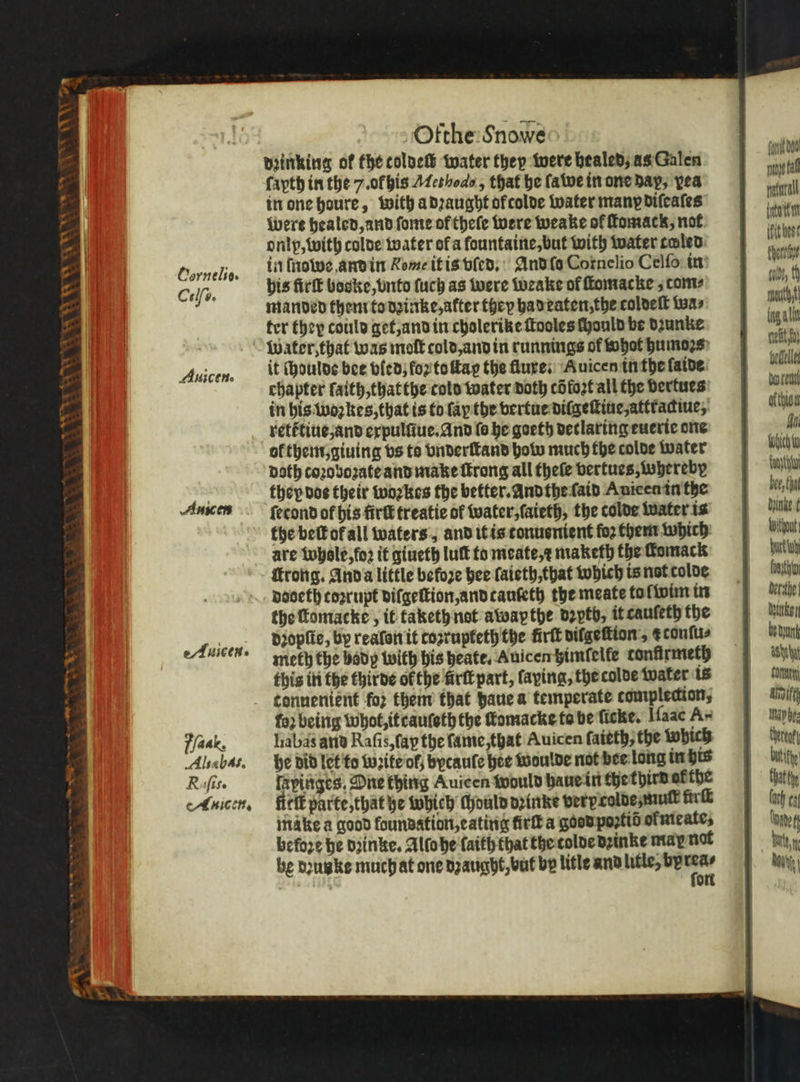 Of the Snowe
drinking of the coldest water they were healed, as Galen
sayth in the 7. of his Methodo, that he sawe in one day, yea
in one houre, with a draught of colde water many diseases
were healed, and some of these were weake of stomack, not
only, with colde water of a fountaine, but with water cooled
in snowe. and in Rome it is vsed. And so Cornelio Celso in
Cornelio.
Celso.
his first booke, vnto such as were weake of stomacke, com-
manded them to drinke, after they had eaten, the coldest wa-
ter they could get, and in cholerike stooles should be drunke
water, that was most cold, and in runnings of whot humors
it shoulde bee vsed, for to stay the flure. Auicen in the saide
Auicen.
chapter saith, that the cold water doth cõfort all the vertues
in his workes, that is to say the vertue disgestiue, attractiue,
retẽtiue, and expulsiue. And so he goeth declaring euerie one
of them, giuing vs to vnderstand how much the colde water
doth coroborate and make strong all these vertues, whereby
they doe their workes the better. And the said Auicen in the
Auicen
second of his first treatie of water, saieth, the colde water is
the best of all waters, and it is conuenient for them which
are whole, for it giueth lust to meate, & maketh the stomack
strong. And a little before hee saieth, that which is not colde
dooeth corrupt disgestion, and causeth the meate to swim in
the stomacke, it taketh not away the dryth, it causeth the
dropsie, by reason it corrupteth the first disgestion, & consu-
Auicen.
meth the body with his heate. Auicen himselfe confirmeth
this in the thirde of the first part, saying, the colde water is
conuenient for them that haue a temperate complection,
for being whot, it causeth the stomacke to be sicke. Isaac A-
Isaak.
Alhabas.
Rasis.
Auicen.
habas and Rasis, say the same, that Auicen saieth, the which
he did let to write of, bycause hee woulde not bee long in his
sayinges. One thing Auicen would haue in the third of the
first parte, that he which should drinke very colde, must first
make a good foundation, eating first a good portiõ of meate,
before he drinke. Also he saith that the colde drinke may not
be drunke much at one draught, but by litle and litle, by rea-
son